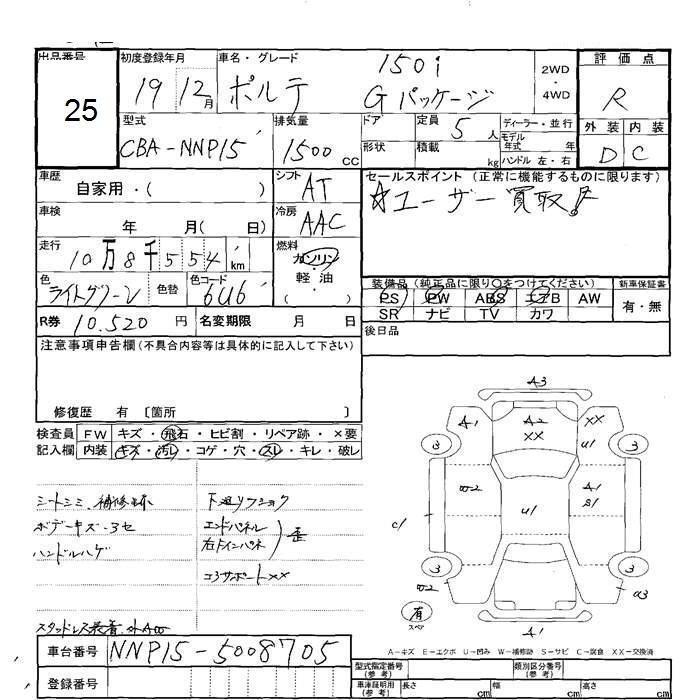 出品番号
25
初度登録年月
19 12月
車名・グレード
ポルテ
150i
Gパッケージ
2WD
・
4WD
評価点
R
外装 内装
D C
型式
CBA-NNP15
排気量
1500 CC
ドア
形状
定員 5人
積載 kg
ディーラー・並行
モデル年式 年
ハンドル 左・右
車歴
自家用・( )
シフト
AT
車検
年 月( 日)
冷房
AAC
走行
10万8千554 km
燃料
ガソリン
軽油
( )
色
ライトグリーン
色替
色コード
6U6
R券 10.520 円
名変期限 月 日
セールスポイント (正常に機能するものに限ります)
☆ユーザー買取!
装備品 (純正品に限り○をつけてください)
新車保証書
PS PW ABS エアB AW
SR ナビ TV カワ
有・無
後日品
注意事項申告欄(不具合内容等は具体的に記入して下さい)
修復歴 有 〔箇所 〕
検査員記入欄
FW キズ・飛石・ヒビ割・リペア跡・×要
内装 キズ・汚レ・コゲ・穴・スレ・キレ・破レ
シートシミ、補修跡
ボデーキズ・ヨセ
ハンドルハゲ
下廻りフショク
エンドパネル
右
歪
コアサポートXX
スタッドレス装着
A3
A1
A2
XX
XX
U1
3
3
W2
A1
S1
U1
C1
3
3
W2
A3
有
スペア
A1
A-キズ E-エクボ U-凹み W-補修跡 S-サビ C-腐食 XX-交換済
車台番号 NNP15-5008705
登録番号
型式指定番号(参考)
類別区分番号(参考)
車庫証明用(参考)
長さ cm
幅 cm
高さ cm